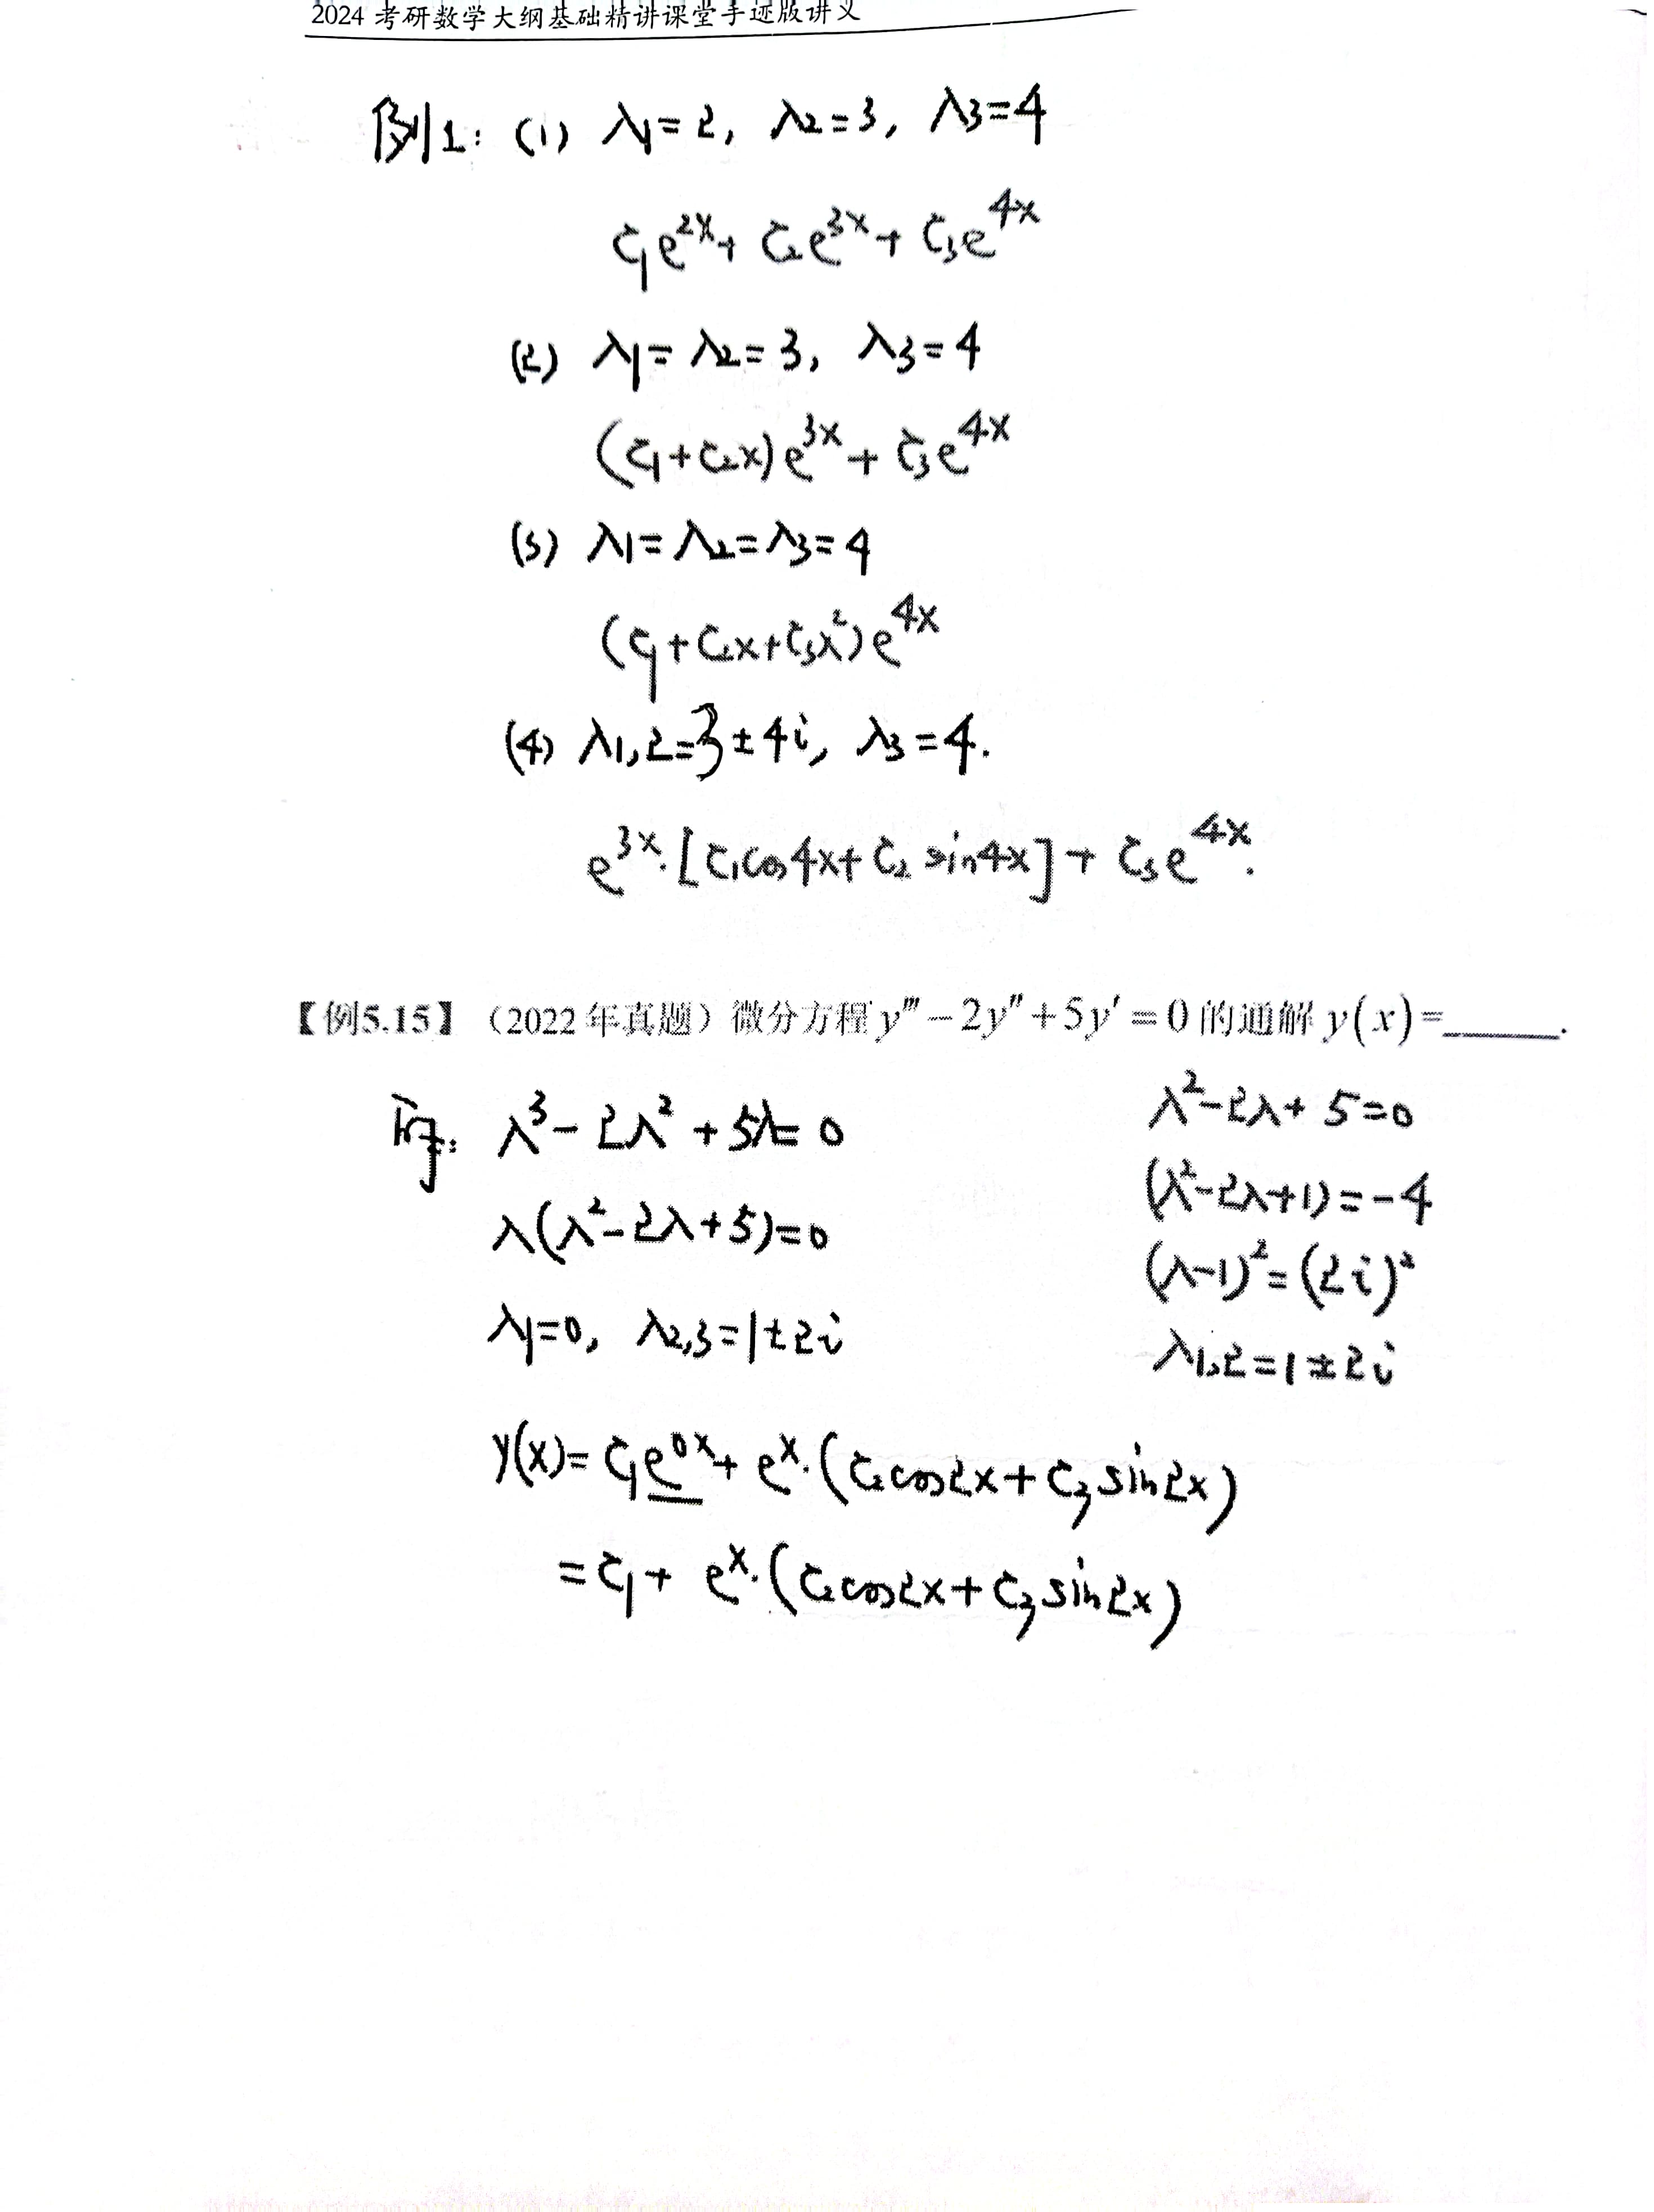 2024 考研数学大纲基础精讲课堂手迹版讲义
例1: (1) λ₁=2, λ₂=3, λ₃=4
C₁e^{2x}+C₂e^{3x}+C₃e^{4x}
(2) λ₁=λ₂=3, λ₃=4
(C₁+C₂x)e^{3x}+C₃e^{4x}
(3) λ₁=λ₂=λ₃=4
(C₁+C₂x+C₃x²)e^{4x}
(4) λ₁,₂=3±4i, λ₃=4.
e^{3x}·[C₁cos4x+C₂ sin4x]+C₃e^{4x}.
【例5.15】(2022年真题)微分方程 y‴−2y″+5y′=0 的通解 y(x)=______.
λ³−2λ²+5λ=0
λ(λ²−2λ+5)=0
λ₁=0, λ₂,₃=1±2i
λ²−2λ+5=0
(λ²−2λ+1)=−4
(λ−1)²=(2i)²
λ₁,₂=1±2i
y(x)=C₁e^{0x}+e^x·(C₂cos2x+C₃sin2x)
=C₁+e^x·(C₂cos2x+C₃sin2x)